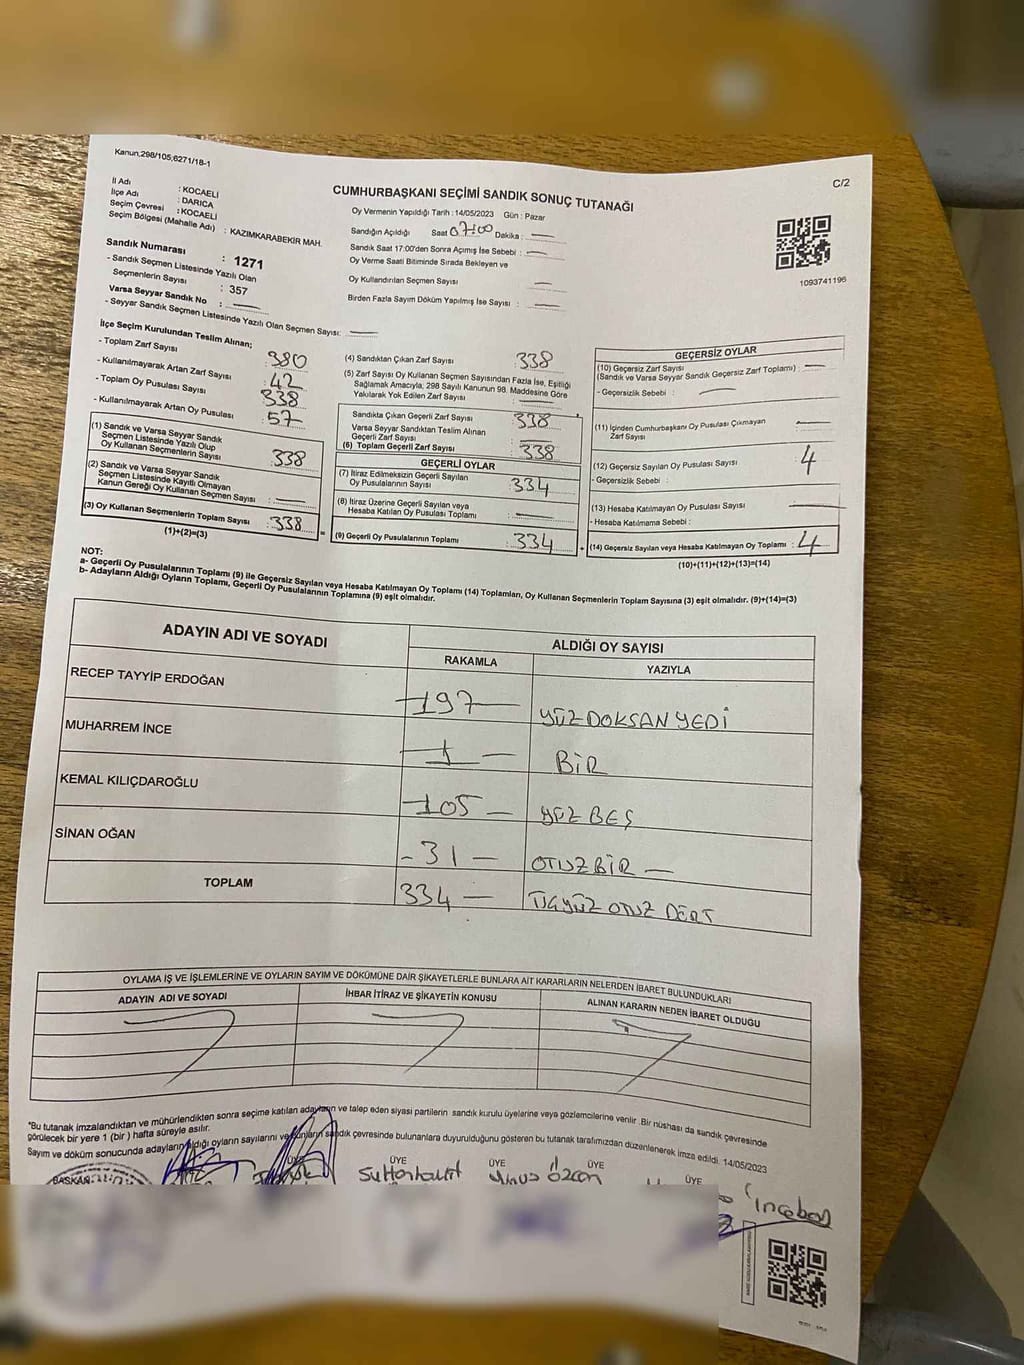 Kanun,298/105,6271/18-1
C/2
İl Adı : KOCAELİ
İlçe Adı : DARICA
Seçim Çevresi : KOCAELİ
Seçim Bölgesi (Mahalle Adı) : KAZIMKARABEKIR MAH.
Sandık Numarası : 1271
- Sandık Seçmen Listesinde Yazılı Olan
Seçmenlerin Sayısı : 357
Varsa Seyyar Sandık No :
- Seyyar Sandık Seçmen Listesinde Yazılı Olan Seçmen Sayısı:
CUMHURBAŞKANI SEÇİMİ SANDIK SONUÇ TUTANAĞI
Oy Vermenin Yapıldığı Tarih : 14/05/2023 Gün : Pazar
Sandığın Açıldığı Saat 07:00 Dakika :
Sandık Saat 17:00'den Sonra Açımış İse Sebebi :
Oy Verme Saati Bitiminde Sırada Bekleyen ve
Oy Kullandırılan Seçmen Sayısı
Birden Fazla Sayım Döküm Yapılmış İse Sayısı :
1093741196
İlçe Seçim Kurulundan Teslim Alınan;
- Toplam Zarf Sayısı 380
- Kullanılmayarak Artan Zarf Sayısı 42
- Toplam Oy Pusulası Sayısı 338
- Kullanılmayarak Artan Oy Pusulası : 57
(1) Sandık ve Varsa Seyyar Sandık
Seçmen Listesinde Yazılı Olup
Oy Kullanan Seçmenlerin Sayısı 338
(2) Sandık ve Varsa Seyyar Sandık
Seçmen Listesinde Kayıtlı Olmayan
Kanun Gereği Oy Kullanan Seçmen Sayısı :
(3) Oy Kullanan Seçmenlerin Toplam Sayısı : 338
(1)+(2)=(3)
(4) Sandıktan Çıkan Zarf Sayısı : 338
(5) Zarf Sayısı Oy Kullanan Seçmen Sayısından Fazla İse, Eşitliği
Sağlamak Amacıyla, 298 Sayılı Kanunun 98. Maddesine Göre
Yakılarak Yok Edilen Zarf Sayısı
Sandıkta Çıkan Geçerli Zarf Sayısı : 338
Varsa Seyyar Sandıktan Teslim Alınan
Geçerli Zarf Sayısı
(6) Toplam Geçerli Zarf Sayısı : 338
GEÇERLİ OYLAR
(7) İtiraz Edilmeksizin Geçerli Sayılan
Oy Pusulalarının Sayısı : 334
(8) İtiraz Üzerine Geçerli Sayılan veya
Hesaba Katılan Oy Pusulası Toplamı :
(9) Geçerli Oy Pusulalarının Toplamı : 334
GEÇERSİZ OYLAR
(10) Geçersiz Zarf Sayısı
(Sandık ve Varsa Seyyar Sandık Geçersiz Zarf Toplamı) :
- Geçersizlik Sebebi :
(11) İçinden Cumhurbaşkanı Oy Pusulası Çıkmayan
Zarf Sayısı
(12) Geçersiz Sayılan Oy Pusulası Sayısı : 4
- Geçersizlik Sebebi :
(13) Hesaba Katılmayan Oy Pusulası Sayısı
- Hesaba Katılmama Sebebi :
(14) Geçersiz Sayılan veya Hesaba Katılmayan Oy Toplamı : 4
(10)+(11)+(12)+(13)=(14)
NOT:
a- Geçerli Oy Pusulalarının Toplamı (9) ile Geçersiz Sayılan veya Hesaba Katılmayan Oy Toplamı (14) Toplamları, Oy Kullanan Seçmenlerin Toplam Sayısına (3) eşit olmalıdır. (9)+(14)=(3)
b- Adayların Aldığı Oyların Toplamı, Geçerli Oy Pusulalarının Toplamına (9) eşit olmalıdır.
ADAYIN ADI VE SOYADI ALDIĞI OY SAYISI
RAKAMLA YAZIYLA
RECEP TAYYİP ERDOĞAN 197 YÜZDOKSANYEDİ
MUHARREM İNCE 1 BİR
KEMAL KILIÇDAROĞLU 105 YÜZBEŞ
SİNAN OĞAN 31 OTUZBİR
TOPLAM 334 ÜÇYÜZ OTUZ DÖRT
OYLAMA İŞ VE İŞLEMLERİNE VE OYLARIN SAYIM VE DÖKÜMÜNE DAİR ŞİKAYETLERLE BUNLARA AİT KARARLARIN NELERDEN İBARET BULUNDUKLARI
ADAYIN ADI VE SOYADI İHBAR İTİRAZ VE ŞİKAYETİN KONUSU ALINAN KARARIN NEDEN İBARET OLDUĞU
*Bu tutanak imzalandıktan ve mühürlendikten sonra seçime katılan adayların ve talep eden siyasi partilerin sandık kurulu üyelerine veya gözlemcilerine verilir. Bir nüshası da sandık çevresinde
görülecek bir yere 1 (bir) hafta süreyle asılır.
Sayım ve döküm sonucunda adayların aldığı oyların sayılarını ve bunların sandık çevresinde bulunanlara duyurulduğunu gösteren bu tutanak tarafımızdan düzenlenerek imza edildi. 14/05/2023
BAŞKAN ÜYE ÜYE ÜYE ÜYE ÜYE
Yunus Özcan